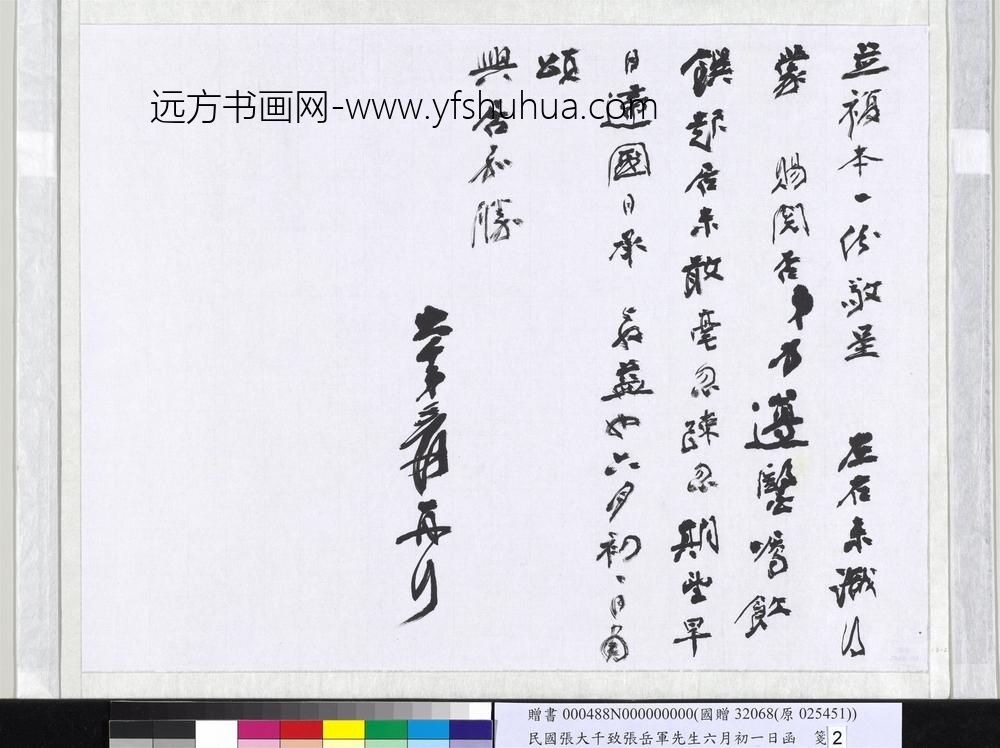 並複本一份敬呈 左右未識得
蒙 賜閱否弟方遵醫囑飲
饌起居未敢毫忽疎忽期望早
日遄國日承 教益也六月初一日
頌
興居 勝
大千弟爰再行
远方书画网-www.yfshuhua.com
贈書 000488N000000000(國贈 32068(原 025451))
民國張大千致張岳軍先生六月初一日函 箋2